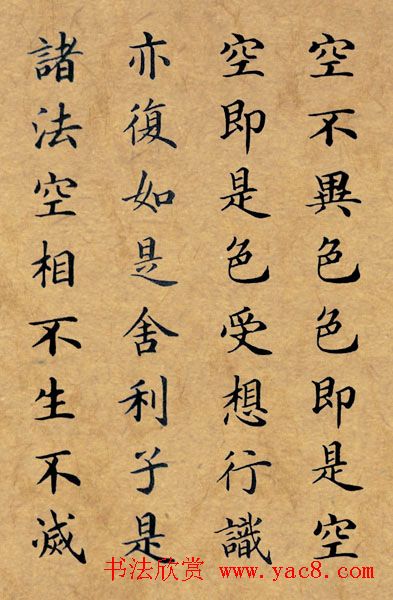 空不異色色即是空
空即是色受想行識
亦復如是舍利子是
諸法空相不生不滅
书法欣赏 www.yac8.com